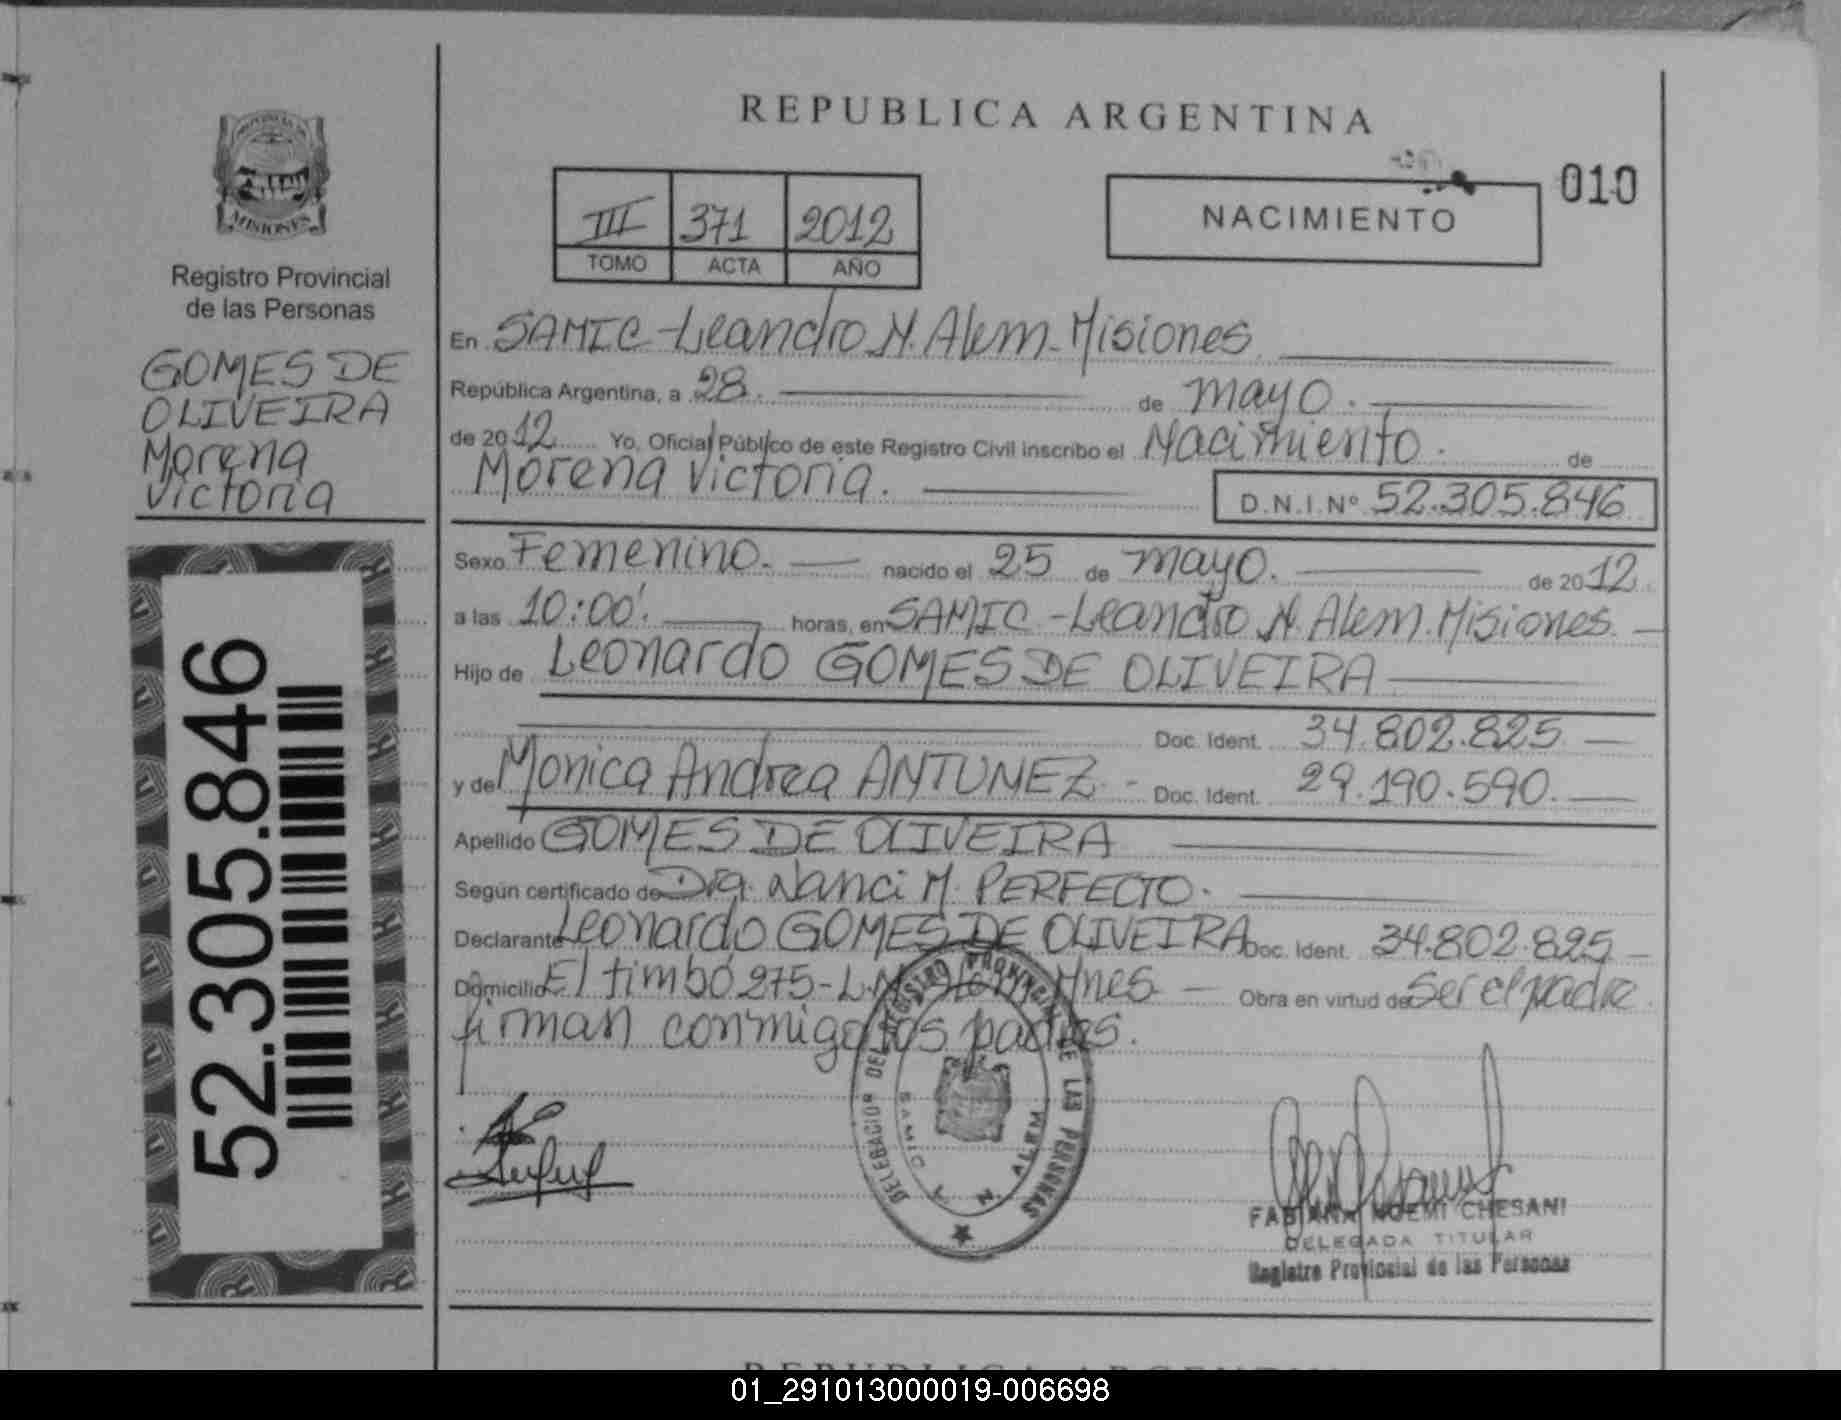 REPUBLICA ARGENTINA
PROVINCIA DE
MISIONES
Registro Provincial
de las Personas
GOMES DE
OLIVEIRA
Morena
Victoria
52.305.846
III 371 2012
TOMO ACTA AÑO
NACIMIENTO
010
En SAMIC-Leandro N. Alem-Misiones
República Argentina, a 28. de mayo.
de 2012 Yo, Oficial Público de este Registro Civil inscribo el Nacimiento. de
Morena Victoria.
D.N.I.Nº 52.305.846
Sexo Femenino. nacido el 25 de mayo. de 2012.
a las 10:00'. horas, en SAMIC-Leandro N. Alem. Misiones.
Hijo de Leonardo GOMES DE OLIVEIRA
Doc. Ident. 34.802.825
y de Monica Andrea ANTUNEZ. - Doc. Ident. 29.190.590.
Apellido GOMES DE OLIVEIRA
Según certificado de Dra. Nanci M. PERFECTO.
Declarante Leonardo GOMES DE OLIVEIRA Doc. Ident. 34.802.825
Domicilio El timbó 275-L.N. Alem Mnes - Obra en virtud de Ser el padre
firman conmigo los padres.
DELEGACION DEL REGISTRO PROVINCIAL DE LAS PERSONAS
SAMIC L. N. ALEM
FABIANA NOEMI CHESANI
DELEGADA TITULAR
Registro Provincial de las Personas
REPUBLICA ARGENTINA
01_291013000019-006698